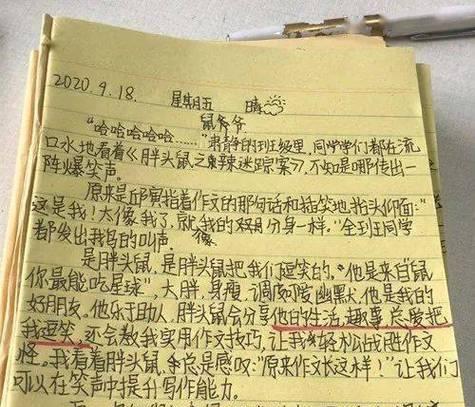 2020.9.18. 星期五 晴
鼠爷爷
“哈哈哈哈哈……”肃静的班级里,同学们都在流
口水地看着《胖头鼠之麻辣迷踪案》,不知是哪传出一
阵爆笑声。
原来是邱寅指着作文的那句话和插笑地抬头仰面:“
这是我!太像我了,就像我的双身分身一样。”全班同学
都发出鸡的叫声。
是胖头鼠,是胖头鼠把我们逗笑的,“他是来自鼠
你最能吃星球”,大胖,身瘦,调皮可爱幽默,他是我的
好朋友,他乐于助人,胖头鼠会分享他的生活,趣事总是把
我逗笑,还会教我实用作文技巧,让我轻松战胜作文
怪。我看着胖头鼠,总是感叹:“原来作文长这样!”让我们
可以在笑声中提升写作能力。